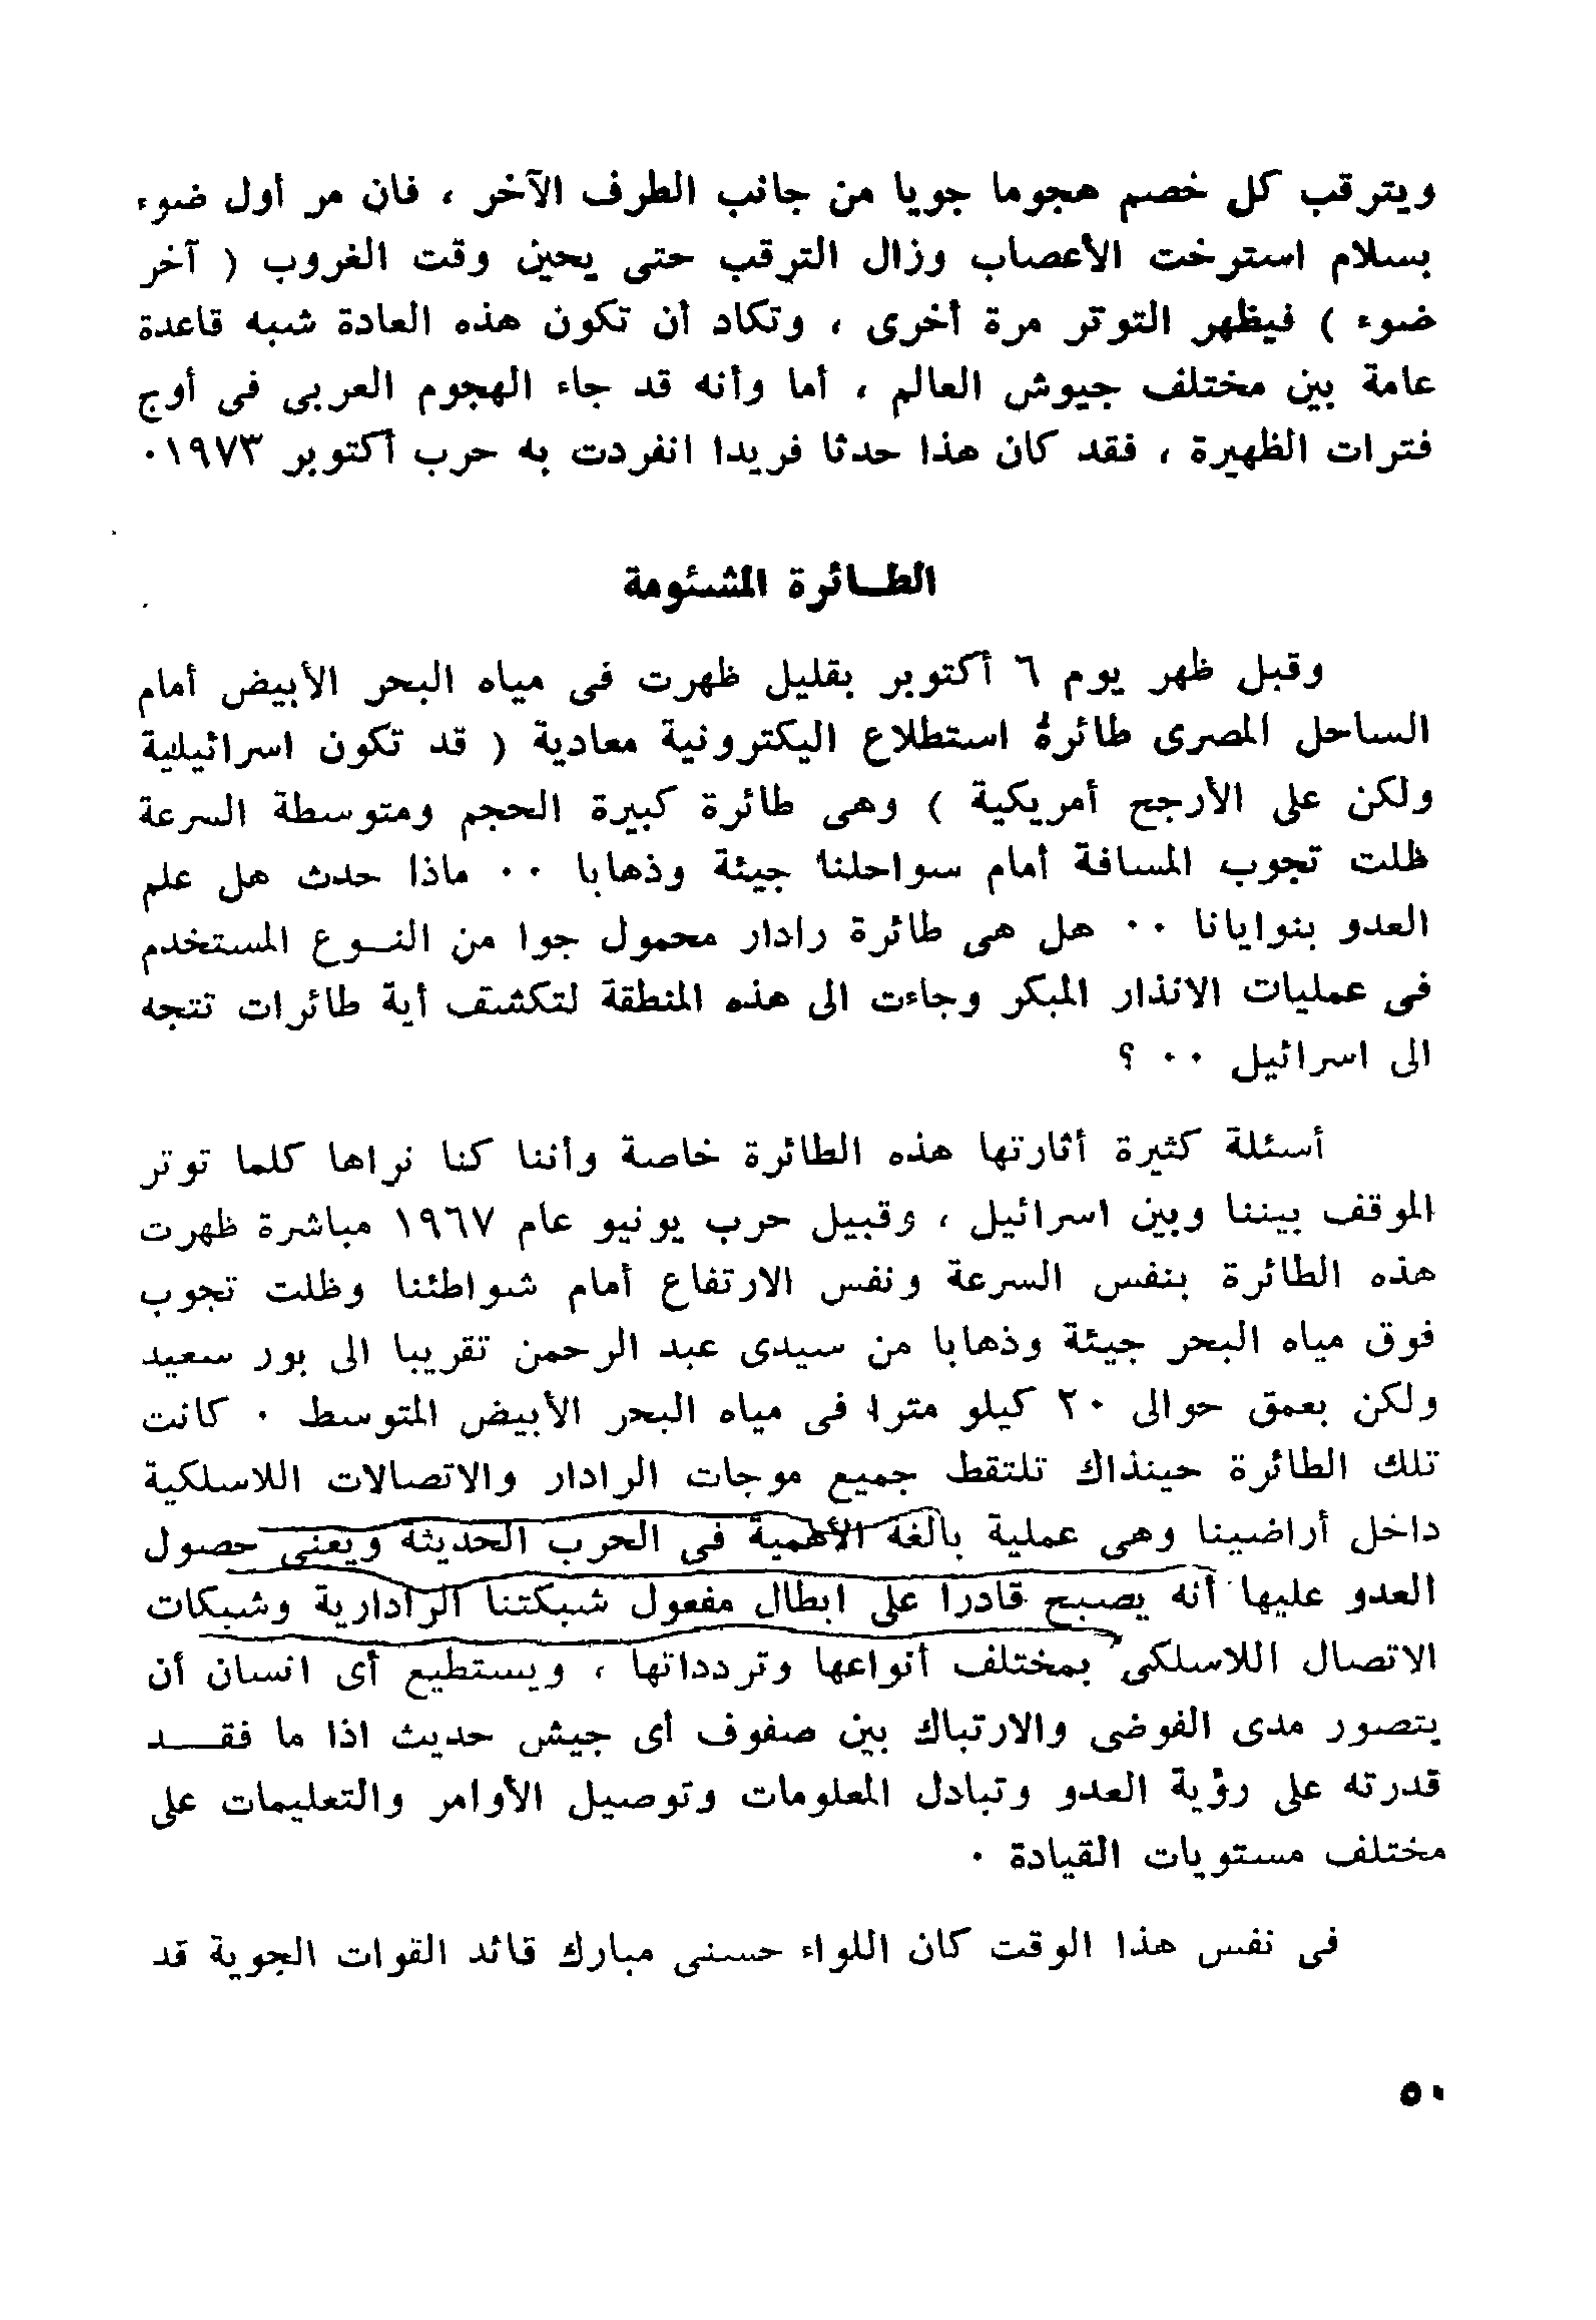 ويترقب كل خصم هجوما جويا من جانب الطرف الآخر ، فان مر أول ضوء
بسلام استرخت الأعصاب وزال الترقب حتى يحين وقت الغروب ( آخر
ضوء ) فيظهر التوتر مرة أخرى ، وتكاد أن تكون هذه العادة شبه قاعدة
عامة بين مختلف جيوش العالم ، أما وأنه قد جاء الهجوم العربى فى أوج
فترات الظهيرة ، فقد كان هذا حدثا فريدا انفردت به حرب أكتوبر ١٩٧٣٠
الطـائرة المشئومة
وقبل ظهر يوم ٦ أكتوبر بقليل ظهرت فى مياه البحر الأبيض أمام
الساحل المصرى طائرة استطلاع اليكترونية معادية ( قد تكون اسرائيلية
ولكن على الأرجح أمريكية ) وهى طائرة كبيرة الحجم ومتوسطة السرعة
ظلت تجوب المسافة أمام سواحلنا جيئة وذهابا ٠٠ ماذا حدث هل علم
العدو بنوايانا ٠٠ هل هى طائرة رادار محمول جوا من النـوع المستخدم
فى عمليات الانذار المبكر وجاءت الى هذه المنطقة لتكشف أية طائرات تتجه
الى اسرائيل ٠٠ ؟
أسئلة كثيرة أثارتها هذه الطائرة خاصة وأننا كنا نراها كلما توتر
الموقف بيننا وبين اسرائيل ، وقبيل حرب يونيو عام ١٩٦٧ مباشرة ظهرت
هذه الطائرة بنفس السرعة ونفس الارتفاع أمام شواطئنا وظلت تجوب
فوق مياه البحر جيئة وذهابا من سيدى عبد الرحمن تقريبا الى بور سعيد
ولكن بعمق حوالى ٢٠ كيلو مترا فى مياه البحر الأبيض المتوسط ٠ كانت
تلك الطائرة حينذاك تلتقط جميع موجات الرادار والاتصالات اللاسلكية
داخل أراضينا وهى عملية بالغة الأهمية فى الحرب الحديثة ويعنى حصول
العدو عليها أنه يصبح قادرا على ابطال مفعول شبكتنا الرادارية وشبكات
الاتصال اللاسلكى بمختلف أنواعها وتردداتها ، ويستطيع أى انسان أن
يتصور مدى الفوضى والارتباك بين صفوف أى جيش حديث اذا ما فقـــد
قدرته على رؤية العدو وتبادل المعلومات وتوصيل الأوامر والتعليمات على
مختلف مستويات القيادة ٠
فى نفس هذا الوقت كان اللواء حسنى مبارك قائد القوات الجوية قد
٥٠